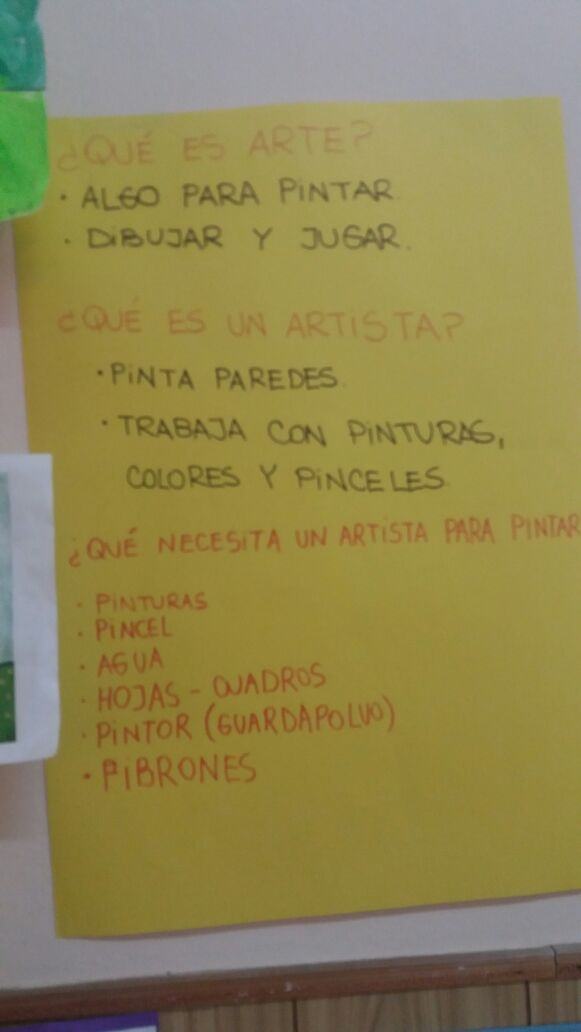 ¿QUÉ ES ARTE?
· ALGO PARA PINTAR.
· DIBUJAR Y JUGAR.
¿QUÉ ES UN ARTISTA?
· PINTA PAREDES.
· TRABAJA CON PINTURAS,
COLORES Y PINCELES.
¿QUÉ NECESITA UN ARTISTA PARA PINTAR
· PINTURAS
· PINCEL
· AGUA
· HOJAS - CUADROS
· PINTOR (GUARDAPOLVO)
· FIBRONES